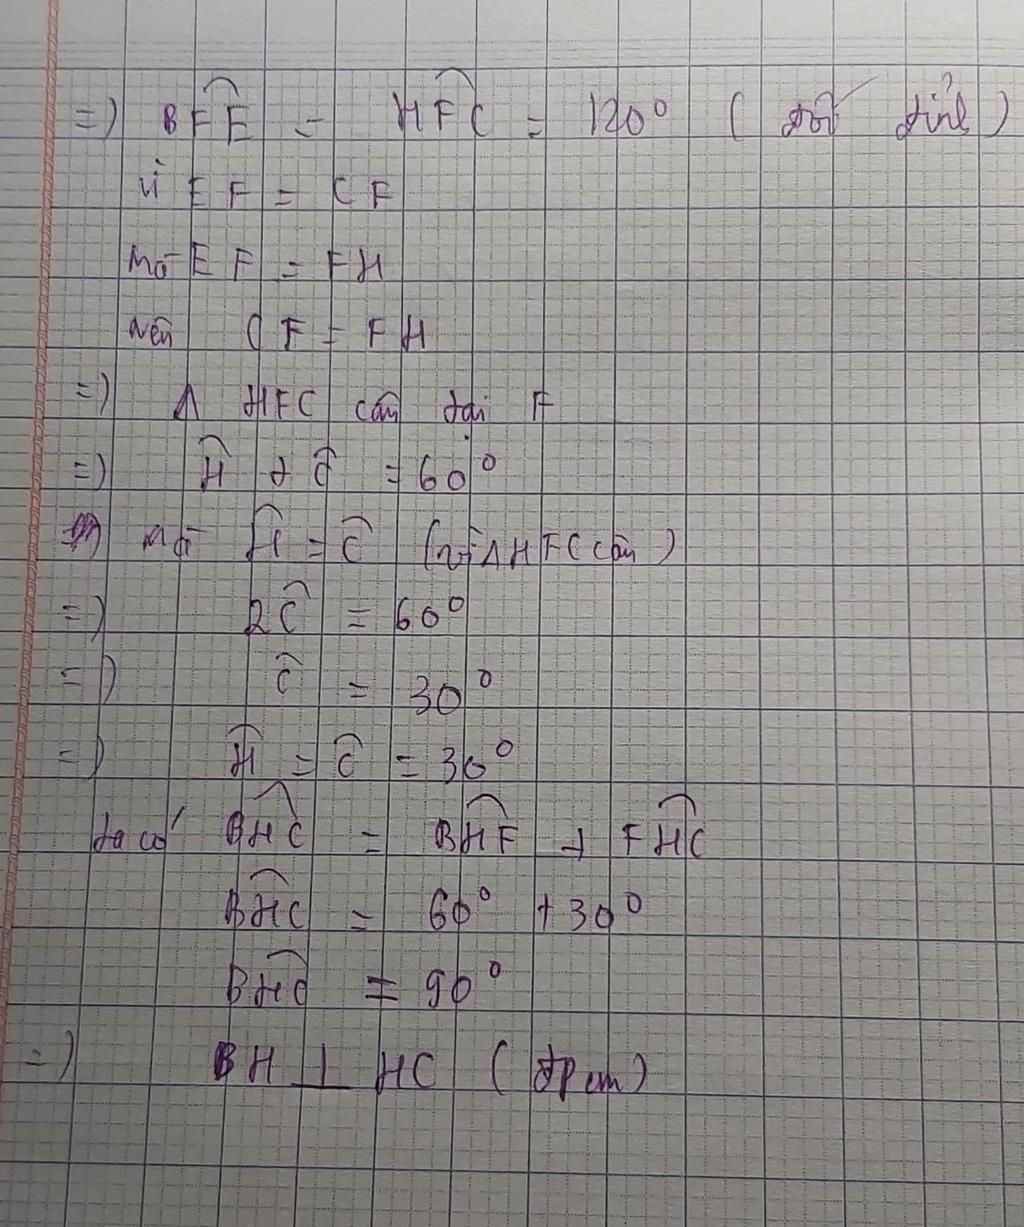 =) BFE = HFC = 120° ( đối đỉnh )
Vì EF = CF
Mà EF = FH
Nên CF = FH
=) Δ HFC cân tại F
=) Ĥ + Ĉ = 60°
Mà Ĥ = Ĉ (vì Δ HFC cân)
=) 2Ĉ = 60°
=) Ĉ = 30°
=) Ĥ = Ĉ = 30°
ta có BHC = BHF + FHC
BHC = 60° + 30°
BHC = 90°
=) BH ⊥ HC (đpcm)